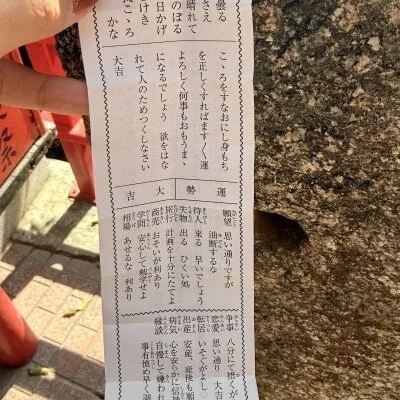 曇る
さえ
晴れて
のぼる
日かげ
けき
こゝろ
かな
こゝろをすなおにし身もち
を正しくすればます〱運
よろしく何事もおもうまゝ
になるでしょう 欲をはな
れて人のためつくしなさい
大吉
運勢 大吉
願望 思い通りですが
油断するな
待人 来る 早いでしょう
失物 出る ひくい処
旅行 計画を十分にたてよ
商売 おそいが利あり
学問 安心して勉学せよ
相場 あせるな 利あり
争事 八分にて措くが
恋愛 思い通り 大吉
転居 いそぐがよし
出産 安産、産後も
病気 心を安らかに信
縁談 自慢して嫌われ
事有慎め早く調